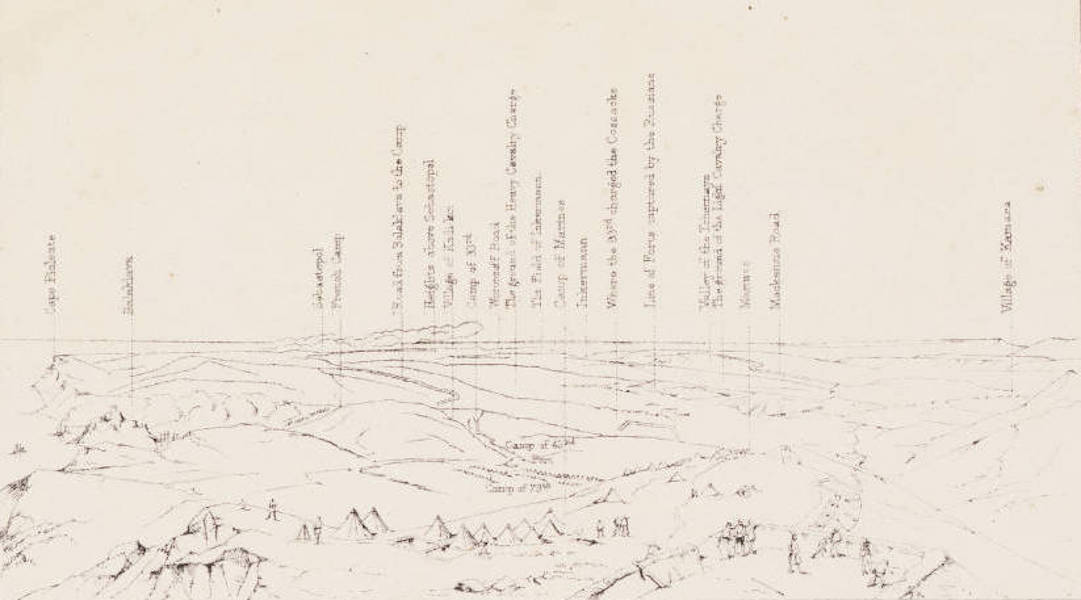 Cape Fiolente
Balaklava
Sebastopol
French Camp
Road from Balaklava to the Camp
Heights above Sebastopol
Village of
Camp of 93rd
Woronzoff Road
The ground of the Heavy Cavalry Charge
The Field of Inkermann
Camp of Marines
Inkermann
Where the 93rd charged the Cossacks
Line of Forts captured by the Russians
Valley of the Tchernaya
The ground of the Light Cavalry Charge
Mackenzie Road
Village of Kamara
Camp of
Camp of 79th